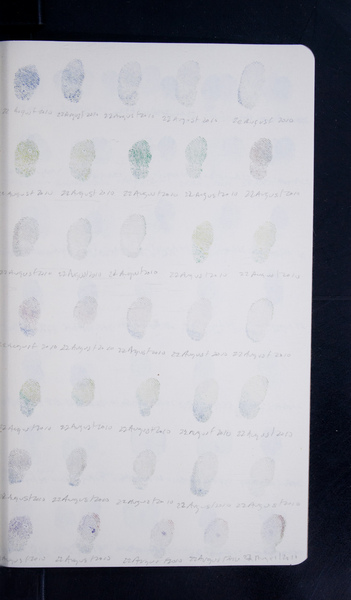 22 August 2010 22 August 2010 22 August 2010 22 August 2010 22 August 2010
22 August 2010 22 August 2010 22 August 2010 22 August 2010 22 August 2010
22 August 2010 22 August 2010 22 August 2010 22 August 2010 22 August 2010
22 August 2010 22 August 2010 22 August 2010 22 August 2010 22 August 2010
22 August 2010 22 August 2010 22 August 2010 22 August 2010 22 August 2010
22 August 2010 22 August 2010 22 August 2010 22 August 2010 22 August 2010
August 2010 22 August 2010 22 August 2010 22 August 2010 22 August 2010